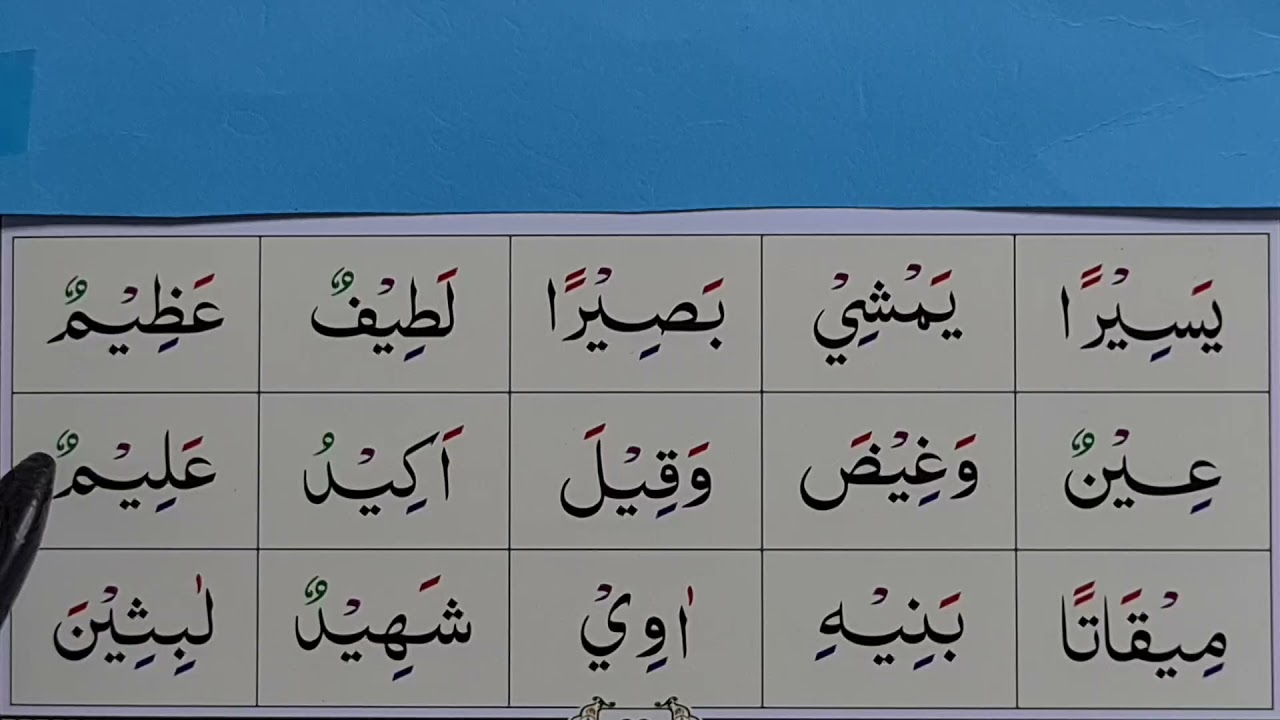 يَسِيْرًا يَمْشِيْ بَصِيْرًا لَطِيْفٌ عَظِيْمٌ
عِيْنٌ وَغِيْضَ وَقِيْلَ اَكِيْدُ عَلِيْمٌ
مِيْقَاتًا بَنِيْهِ اٰوِيْ شَهِيْدٌ لٰبِثِيْنَ